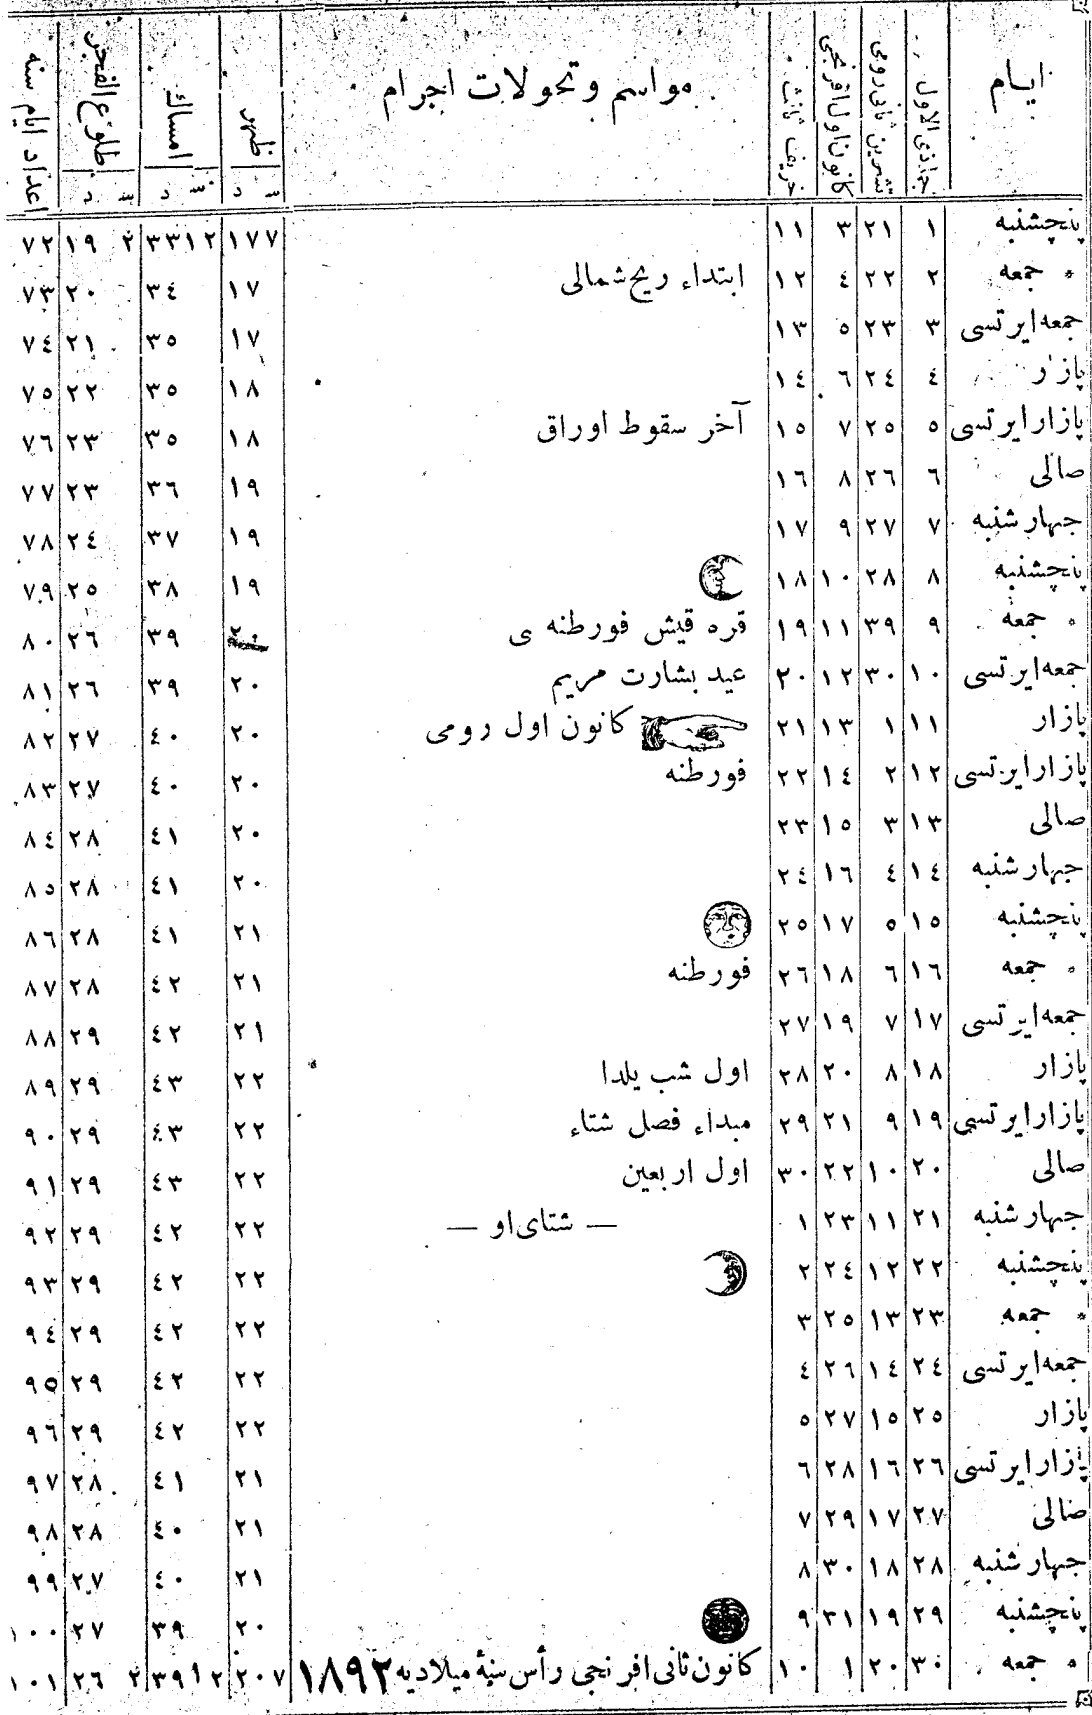 ایام جماذی الاول تشرین ثانی رومی کانون اول افرنجی خریف ثالث مواسم و تحولات اجرام ظهر امساك طلوع الفجر اعداد ایام سنه
س د س د س د
پنجشنبه ١ ٢١ ٣ ١١ ٧ ١٧ ١٢ ٣٣ ٢ ١٩ ٧٢
جمعه ٢ ٢٢ ٤ ١٢ ابتداء ریح شمالی ١٧ ٣٤ ٢٠ ٧٣
جمعه ایرتسی ٣ ٢٣ ٥ ١٣ ١٧ ٣٥ ٢١ ٧٤
پازار ٤ ٢٤ ٦ ١٤ ١٨ ٣٥ ٢٢ ٧٥
پازار ایرتسی ٥ ٢٥ ٧ ١٥ آخر سقوط اوراق ١٨ ٣٥ ٢٣ ٧٦
صالی ٦ ٢٦ ٨ ١٦ ١٩ ٣٦ ٢٣ ٧٧
جهار شنبه ٧ ٢٧ ٩ ١٧ ١٩ ٣٧ ٢٤ ٧٨
پنجشنبه ٨ ٢٨ ١٠ ١٨ ١٩ ٣٨ ٢٥ ٧٩
جمعه ٩ ٣٩ ١١ ١٩ قره قیش فورطنه ی ٢٠ ٣٩ ٢٦ ٨٠
جمعه ایرتسی ١٠ ٣٠ ١٢ ٢٠ عید بشارت مریم ٢٠ ٣٩ ٢٦ ٨١
پازار ١١ ١ ١٣ ٢١ کانون اول رومی ٢٠ ٤٠ ٢٧ ٨٢
پازار ایرتسی ١٢ ٢ ١٤ ٢٢ فورطنه ٢٠ ٤٠ ٢٧ ٨٣
صالی ١٣ ٣ ١٥ ٢٣ ٢٠ ٤١ ٢٨ ٨٤
جهار شنبه ١٤ ٤ ١٦ ٢٤ ٢٠ ٤١ ٢٨ ٨٥
پنجشنبه ١٥ ٥ ١٧ ٢٥ ٢١ ٤١ ٢٨ ٨٦
جمعه ١٦ ٦ ١٨ ٢٦ فورطنه ٢١ ٤٢ ٢٨ ٨٧
جمعه ایرتسی ١٧ ٧ ١٩ ٢٧ ٢١ ٤٢ ٢٩ ٨٨
پازار ١٨ ٨ ٢٠ ٢٨ اول شب یلدا ٢٢ ٤٣ ٢٩ ٨٩
پازار ایرتسی ١٩ ٩ ٢١ ٢٩ مبداء فصل شتاء ٢٢ ٤٣ ٢٩ ٩٠
صالی ٢٠ ١٠ ٢٢ ٣٠ اول اربعین ٢٢ ٤٣ ٢٩ ٩١
جهار شنبه ٢١ ١١ ٢٣ ١ — شتای او — ٢٢ ٤٢ ٢٩ ٩٢
پنجشنبه ٢٢ ١٢ ٢٤ ٢ ٢٢ ٤٢ ٢٩ ٩٣
جمعه ٢٣ ١٣ ٢٥ ٣ ٢٢ ٤٢ ٢٩ ٩٤
جمعه ایرتسی ٢٤ ١٤ ٢٦ ٤ ٢٢ ٤٢ ٢٩ ٩٥
پازار ٢٥ ١٥ ٢٧ ٥ ٢٢ ٤٢ ٢٩ ٩٦
پازار ایرتسی ٢٦ ١٦ ٢٨ ٦ ٢١ ٤١ ٢٨ ٩٧
صالی ٢٧ ١٧ ٢٩ ٧ ٢١ ٤٠ ٢٨ ٩٨
جهار شنبه ٢٨ ١٨ ٣٠ ٨ ٢١ ٤٠ ٢٧ ٩٩
پنجشنبه ٢٩ ١٩ ٣١ ٩ ٢٠ ٣٩ ٢٧ ١٠٠
جمعه ٣٠ ٢٠ ١ ١٠ کانون ثانی افرنجی رأس سنۀ میلادیه ١٨٩٢ ٧ ٢٠ ١٢ ٣٩ ٢ ٢٦ ١٠١